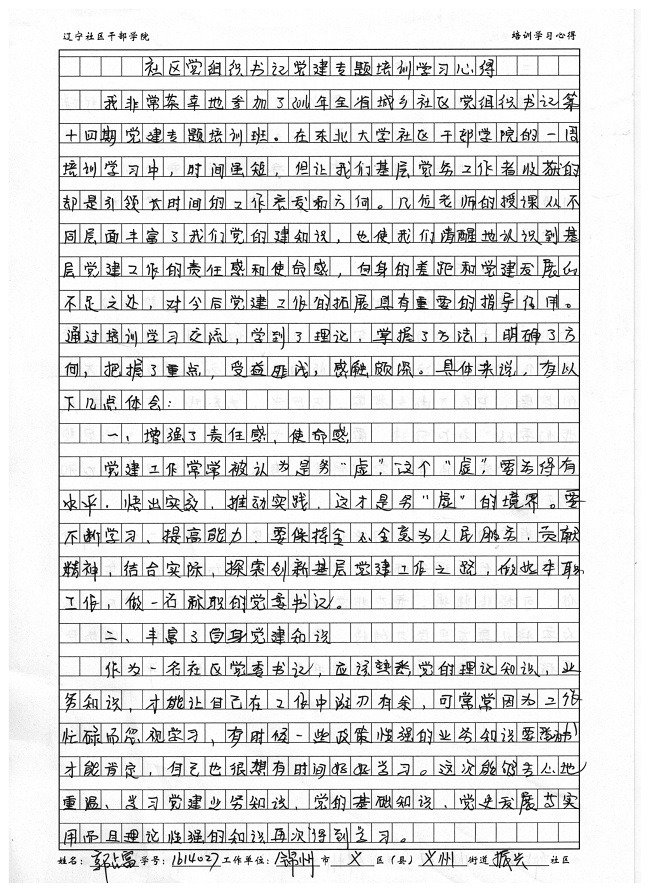 辽宁社区干部学院 培训学习心得
社区党组织书记党建专题培训学习心得
我非常荣幸地参加了 年全省城乡社区党组织书记第
十四期党建专题培训班。在东北大学社区干部学院的一周
培训学习中，时间虽短，但让我们基层党务工作者收获的
却是引领长时间的工作 和方向。几位老师的授课从不
同层面丰富了我们党的建知识，也使我们清醒地认识到基
层党建工作的责任感和使命感，自身的差距和党建发展的
不足之处，对今后党建工作的拓展具有重要的指导作用。
通过培训学习交流，学到了理论，掌握了方法，明确了方
向，把握了重点，受益匪浅，感触颇深。具体来说，有以
下几点体会：
一、增强了责任感，使命感
党建工作常常被认为是务“虚”，这个“虚”，要务得有
水平，悟出实效，推动实践，这才是务“虚”的境界。要
不断学习，提高能力，要保持全心全意为人民服务，贡献
精神，结合实际，探索创新基层党建工作之路，做好本职
工作，做一名称职的党委书记。
二、丰富了自身党建知识
作为一名社区党委书记，应该熟悉党的理论知识，业
务知识，才能让自己在工作中游刃有余，可常常因为工作
忙碌而忽视学习，有时候一些政策性强的业务知识要
才能肯定，自己也很想有时间好好学习。这次能够专心地
重温、学习党建业务知识，党的基础知识，党史发展等实
用而且理论性强的知识再次得到学习。
姓名： 学号：1614027 工作单位：锦州 市 义 区（县） 义州 街道 振兴 社区